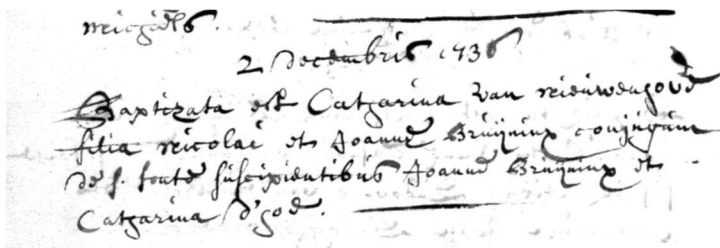 michaelis.
2 decembris 1736
Baptizata est Catharina Van nieuwenhove
filia nicolai et Joannæ Bruijninx conjugum
de s. fonte suscipientibus Joanne Bruijninx et
Catharina d'hoe.